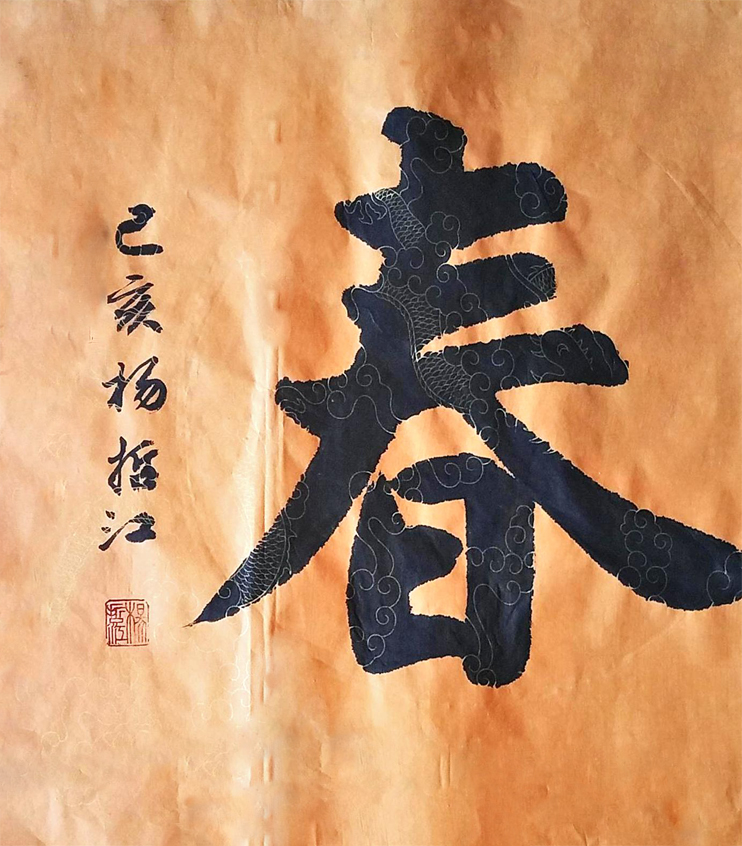 春
己亥杨哲江